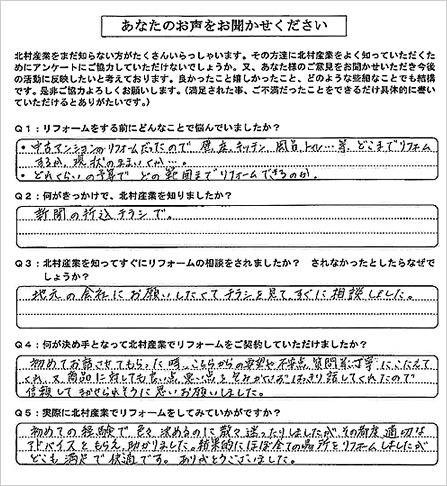 あなたのお声をお聞かせください
北村産業をまだ知らない方がたくさんいらっしゃいます。その方達に北村産業をよく知っていただくた
めにアンケートにご協力していただけないでしょうか。又、あなた様のご意見をお聞かせいただき今後
の活動に反映したいと考えております。良かったこと嬉しかったこと、どのような些細なことでも結構
です。是非ご協力よろしくお願いします。(満足された事、ご不満だったことをできるだけ具体的に書い
ていただけるとありがたいです。)
Q1:リフォームをする前にどんなことで悩んでいましたか?
・中古マンションのリフォームだったので 壁、床、キッチン、風呂、トイレ…等、どこまでリフォーム
するか、現状のままいくか…。
・どれくらいの予算で どの範囲までリフォームできるのか。
Q2:何がきっかけで、北村産業を知りましたか?
新聞の折込チラシで。
Q3:北村産業を知ってすぐにリフォームの相談をされましたか? されなかったとしたらなぜで
しょうか?
地元の会社にお願いしたくてチラシを見て、すぐに相談しました。
Q4:何が決め手となって北村産業でリフォームをご契約していただけましたか?
初めてお話させてもらった時、こちらからの要望や不安点、質問等に丁寧にこたえて
くれ、又、商品に対しても良い点、悪い点をそれぞれはっきり話してくれたので
信頼して まかせられそうに思いお願いしました。
Q5:実際に北村産業でリフォームをしてみていかがですか?
初めての経験で色々決めるのに散々迷ったりしましたが、その都度適切な
アドバイスをもらえ、助かりました。結果的にほぼ全ての場所をリフォームしましたが
どこも満足で快適です。ありがとうございました。